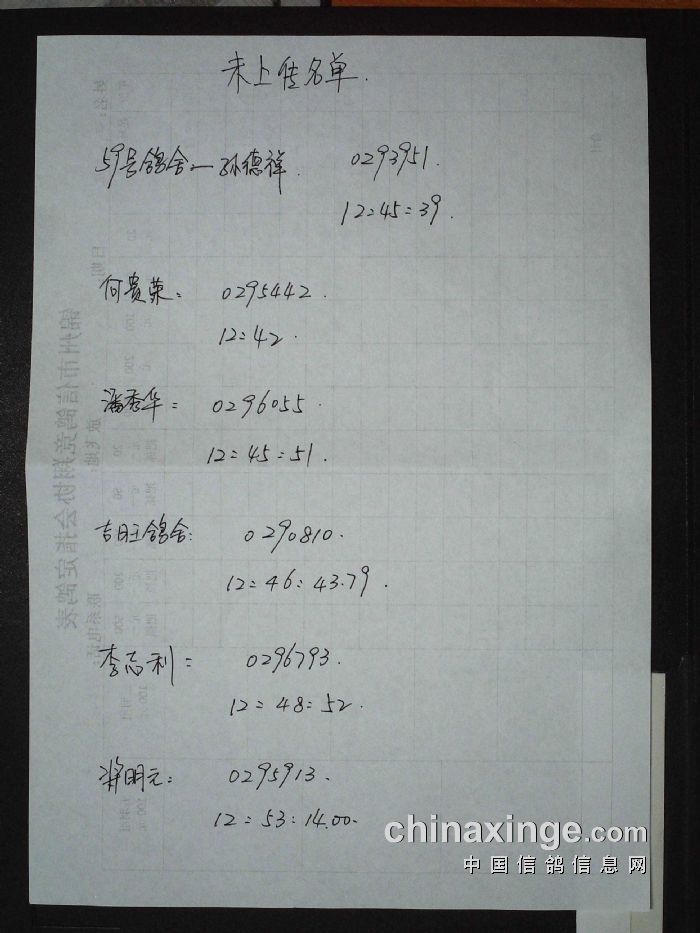 未上传名单.
59号鸽舍—孙德祥. 0293951.
12:45:39.
何贵荣: 0295442.
12:42.
潘秀华: 0296055.
12:45:51.
吉旺鸽舍: 0290810.
12:46:43.79.
李志利: 0296793.
12:48:52.
蒋明元: 0295913.
12:53:14.00.
chinaxinge.com
中国信鸽信息网